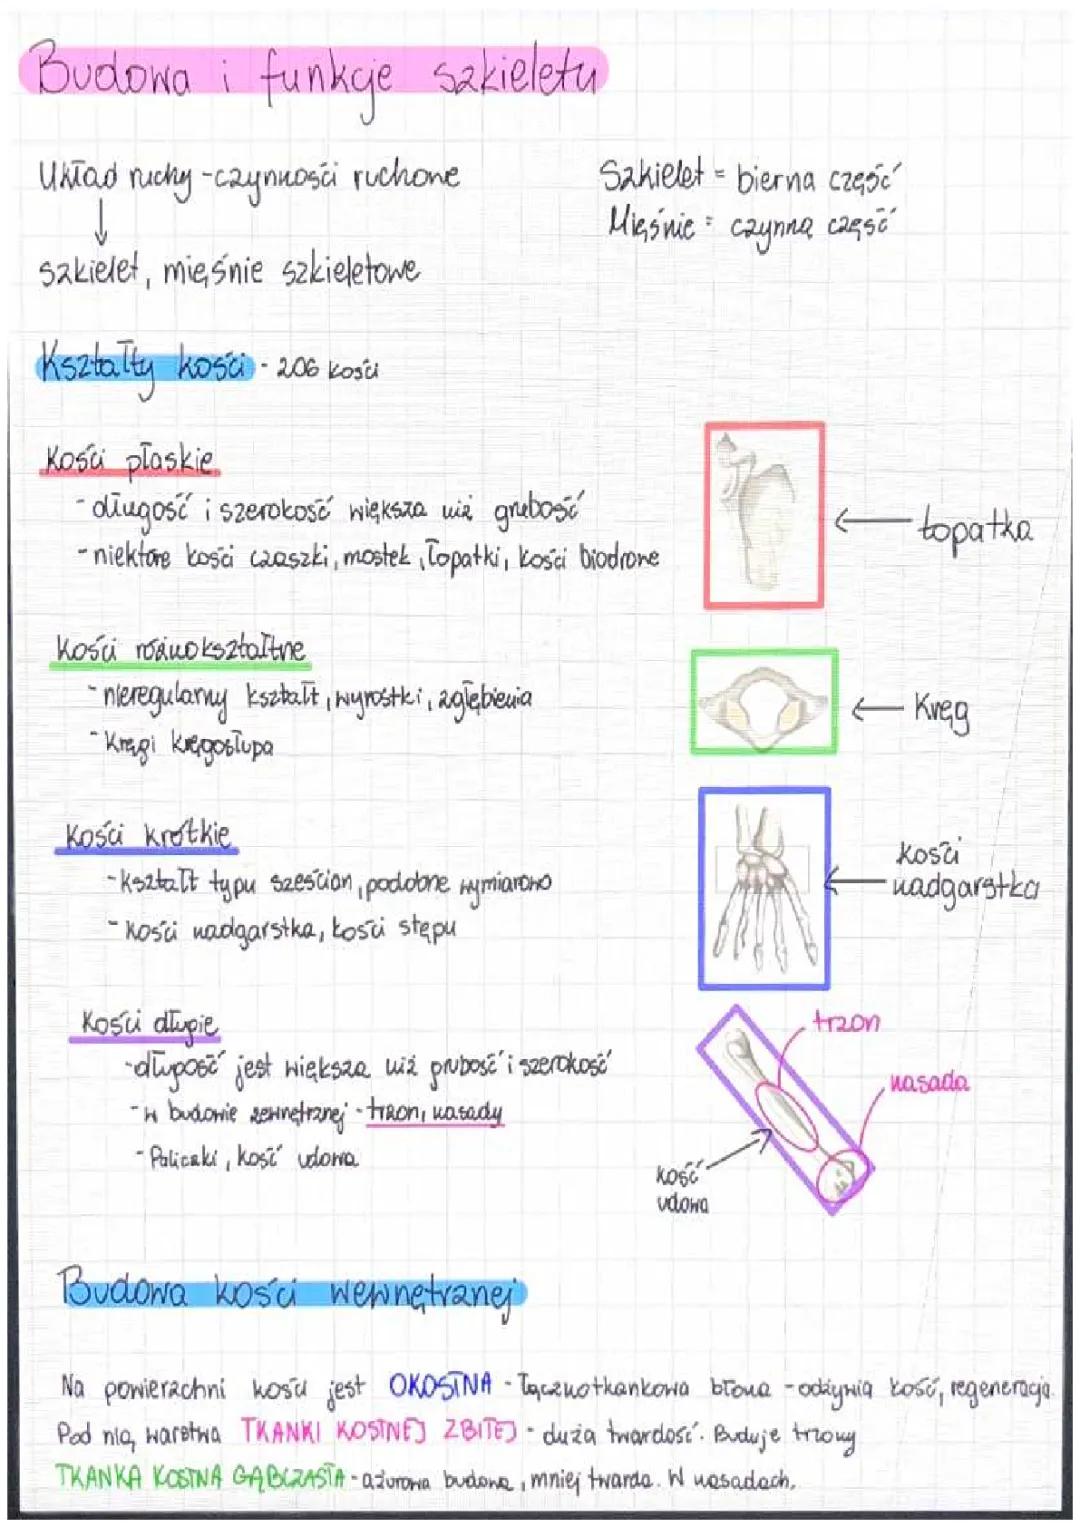 Budowa i funkcje szkieletu
Układ ruchy - czynności ruchone
Szkielet = bierna część
Mięśnie = czynną część
szkielet, mięśnie szkieletowe
Kształty kości - 206 kości
Kości płaskie
- długość i szerokość większa niż grubość
- niektóre kości czaszki, mostek, łopatki, kości biodrowe
← łopatka
Kości różnokształtne
- nieregularny kształt, wyrostki, zgłębienia
- Kręgi kręgosłupa
← Kręg
Kości krótkie
- kształt typu sześcian, podobne wymiarowo
- kości nadgarstka, kości stępu
kości
← nadgarstka
Kości długie
- długość jest większa niż grubość i szerokość
- w budowie zewnętrznej - trzon, nasady
- Paliczki, kość udowa
trzon
nasada
kość
udowa
Budowa kości wewnętrznej
Na powierzchni kości jest OKOSTNA - łącznotkankowa błona - odżywia kość, regeneracja.
Pod nią, warstwa TKANKI KOSTNEJ ZBITEJ - duża twardość. Buduje trzony
TKANKA KOSTNA GĄBCZASTA - ażurowa budowa, mniej twarda. W nasadach.